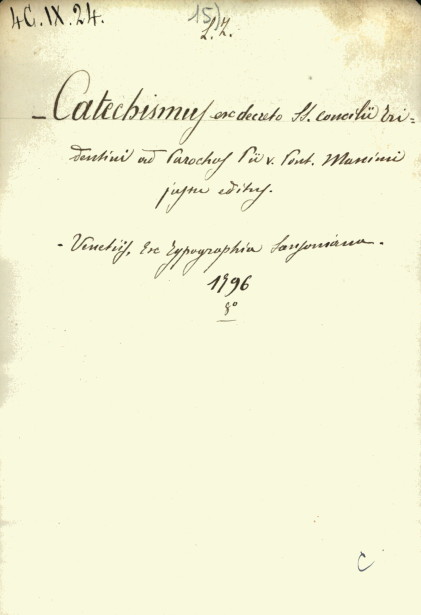 4C.IX.24.
15)
L.Z.
- Catechismus ex decreto SS. concilii Tri=
dentini ad Parochos Pii V. Pont. Maximi
jussu editus.
- Venetiis, Ex Typographia Sansoniana.
1796
8º
C